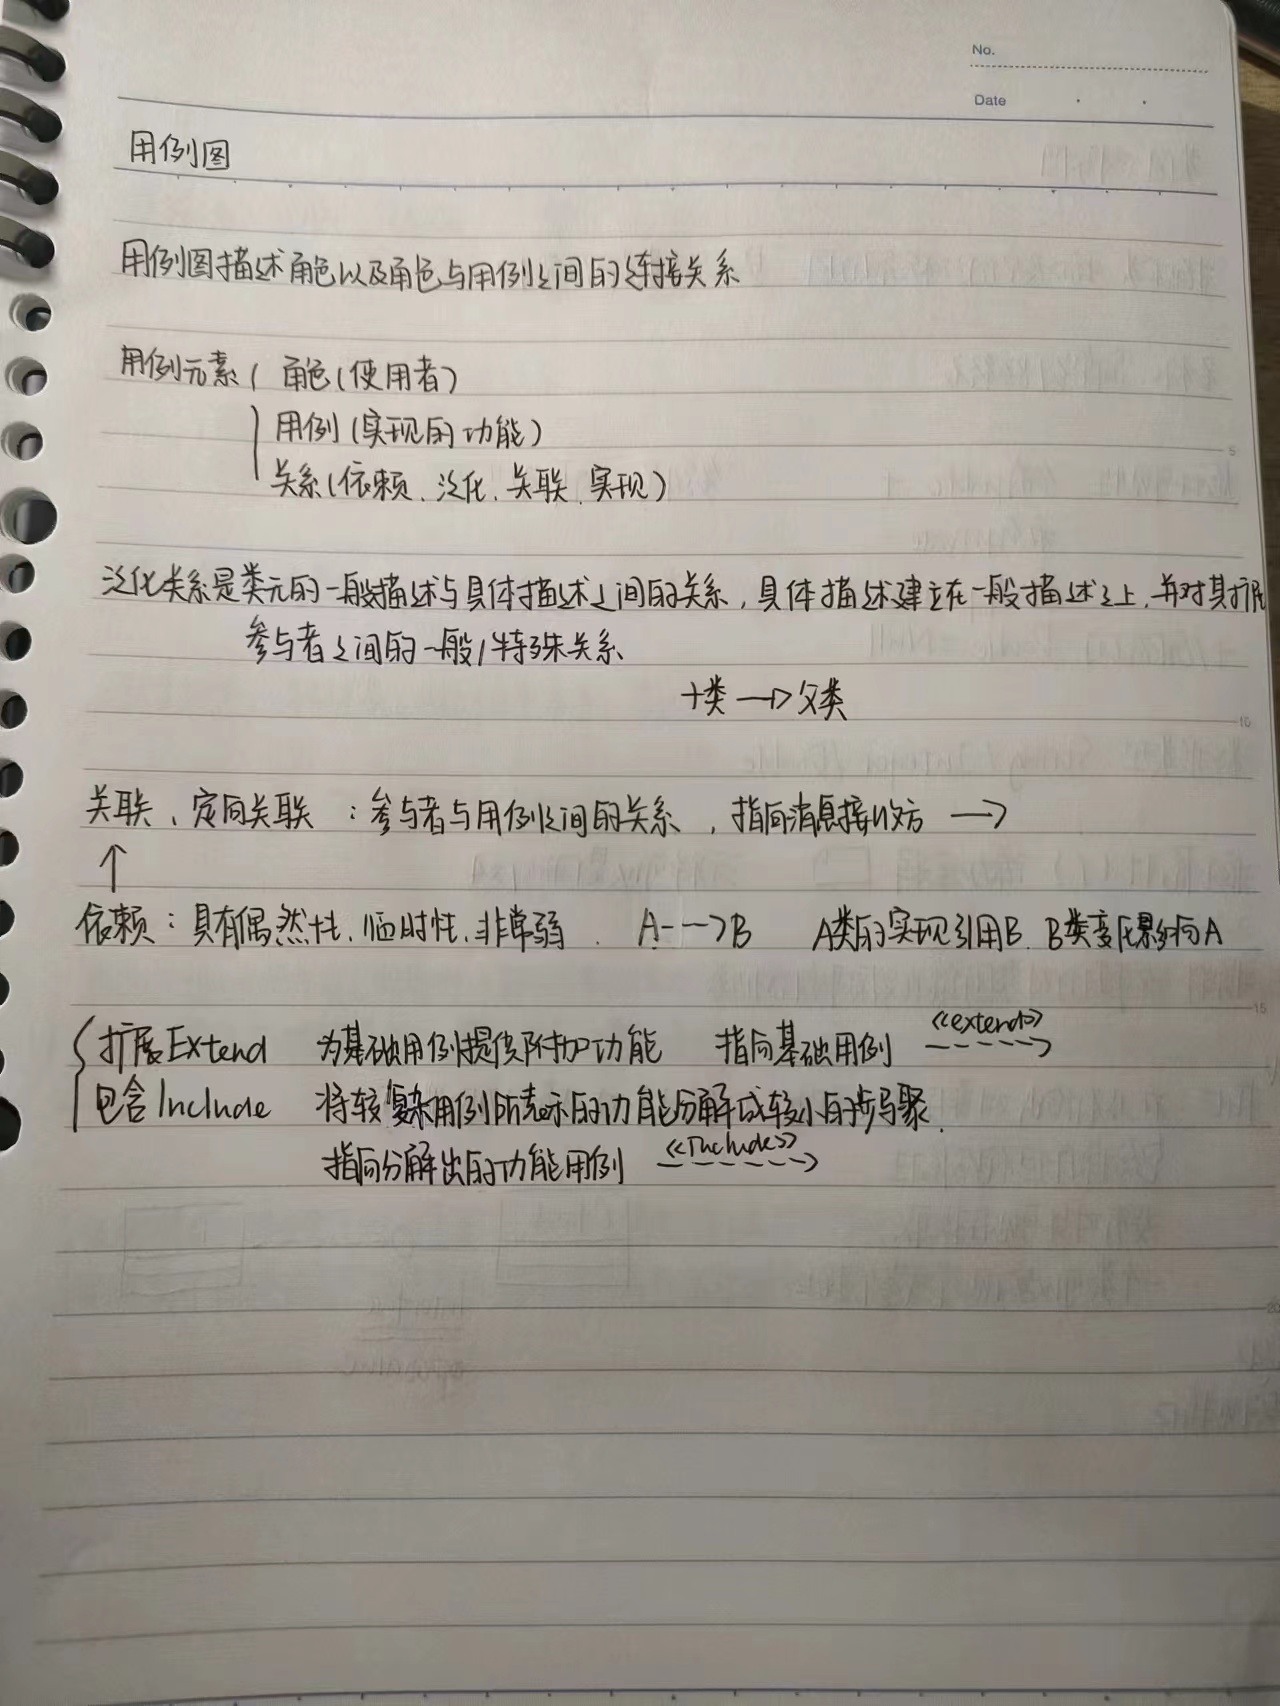 No.
Date
用例图
用例图描述角色以及角色与用例之间的连接关系
用例元素 角色(使用者)
用例(实现的功能)
关系(依赖、泛化、关联、实现)
泛化关系是类元的一般描述与具体描述之间的关系，具体描述建立在一般描述之上，并对其扩展
参与者之间的一般/特殊关系
子类 → 父类
关联、定向关联：参与者与用例之间的关系，指向消息接收方 →
↑
依赖：具有偶然性、临时性、非常弱. A --→ B A类的实现引用B. B类变化影响A
扩展Extend 为基础用例提供附加功能 指向基础用例 <<extend>>
包含Include 将较复杂用例所表示的功能分解成较小的步骤.
指向分解出的功能用例 <<Include>>